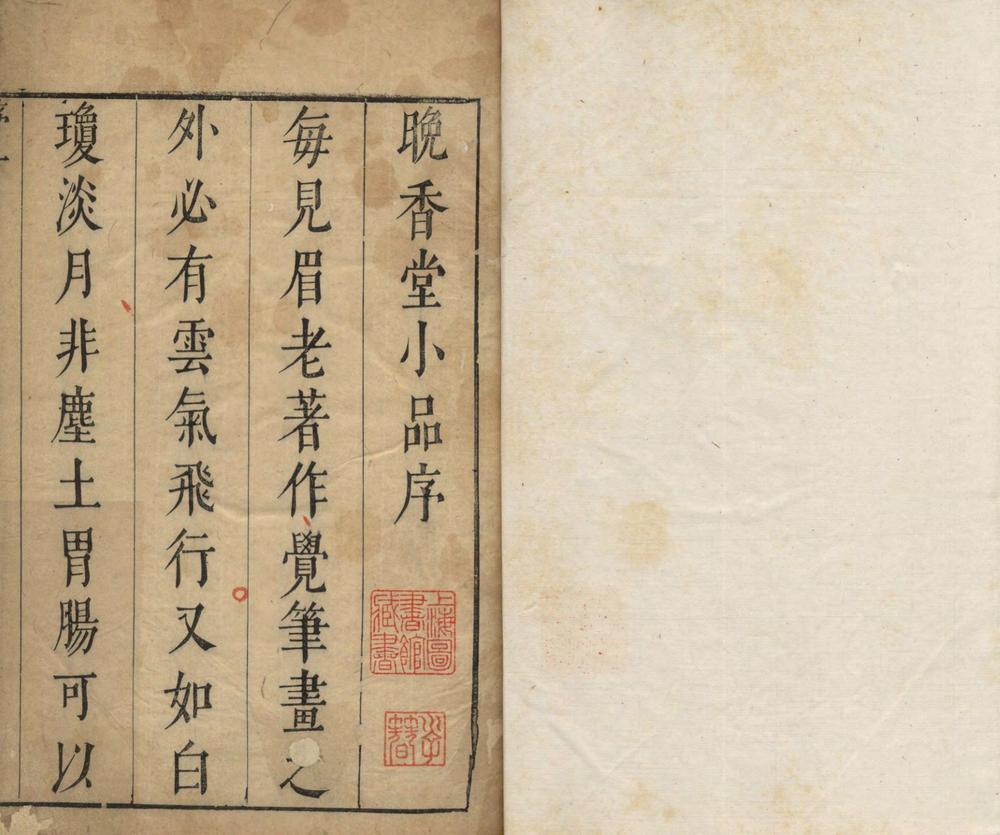 晚香堂小品序
每見眉老著作覺筆畫之
外必有雲氣飛行又如白
瓊淡月非塵土胃腸可以
上海圖書館藏書